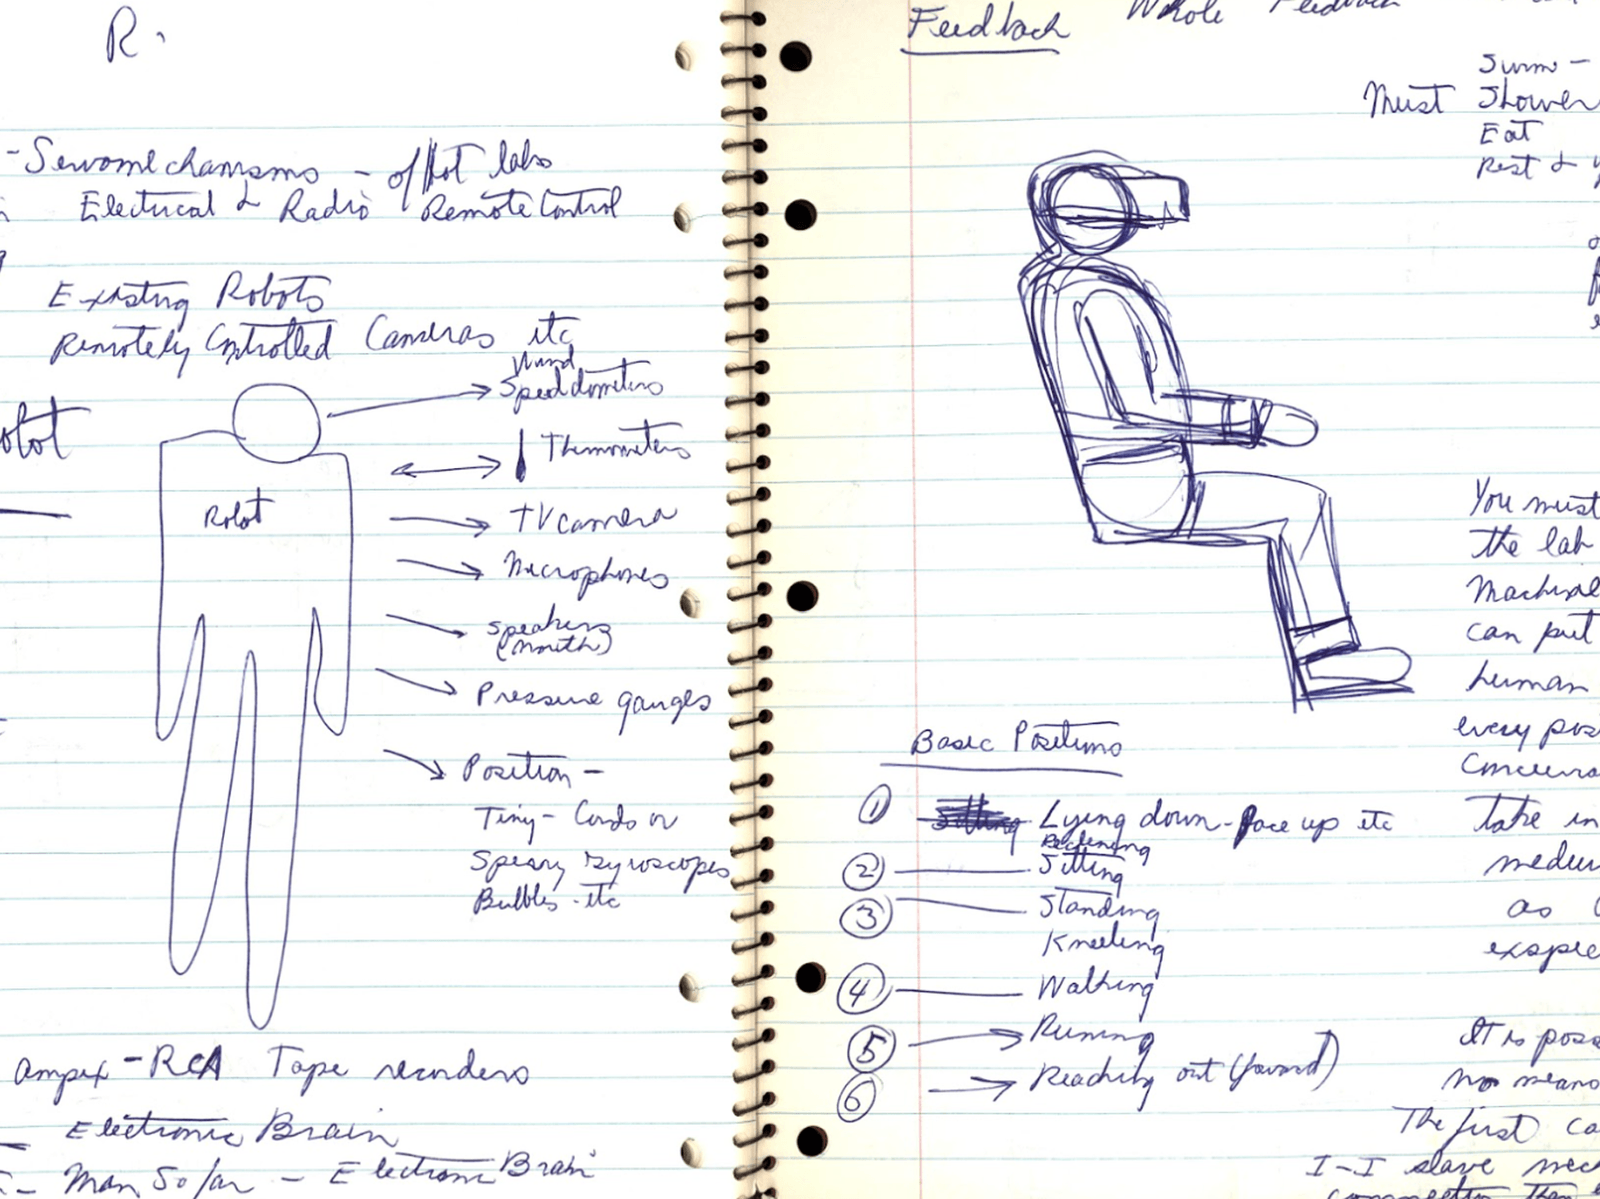 R.
- Servomechanisms - of Hot labs
Electrical & Radio Remote Control
Existing Robots
Remotely Controlled Cameras etc
Wind
Speedometers
Thermometers
Robot
TV camera
Microphones
Speakers
(mouth)
Pressure gauges
Position -
Tiny - Cords or
Gyroscopes
Bubbles - etc
Ampex - RCA Tape recorders
Electronic Brain
- Man So far - Electronic Brain
Feedback Whole Feedback
Swim -
Must Shower
Eat
Rest &
You must
the lab
Machine
can put
human
every pos
take in
as
exspe
Basic Positions
① Sitting Lying down - face up etc
Reclining
② Sitting
③ Standing
Kneeling
④ Walking
⑤ Runing
⑥ Reaching out (forward)
It is poss
no means
The first ca
I-I slave mec